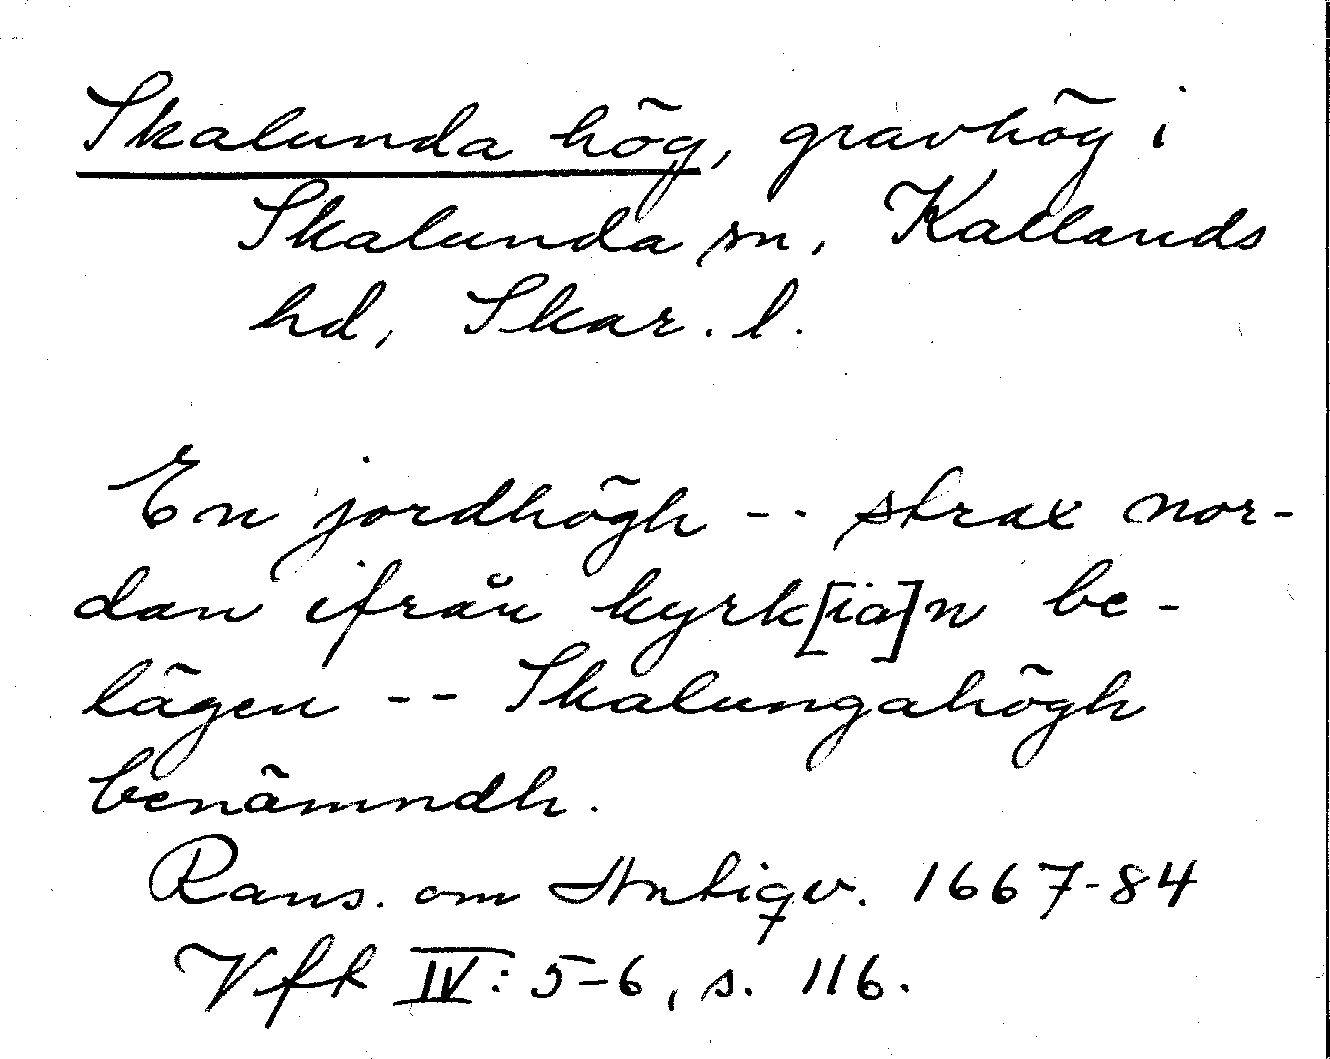 Skalunda hög, gravhög i
Skalunda sn, Kallands
hd, Skar. l.
En jordhögh -- strax nor-
dan ifrån kyrk[ia]n be-
lägen -- Skalungahögh
benämndh.
Rans. om Antiqv. 1667-84
Vft IV: 5-6, s. 116.